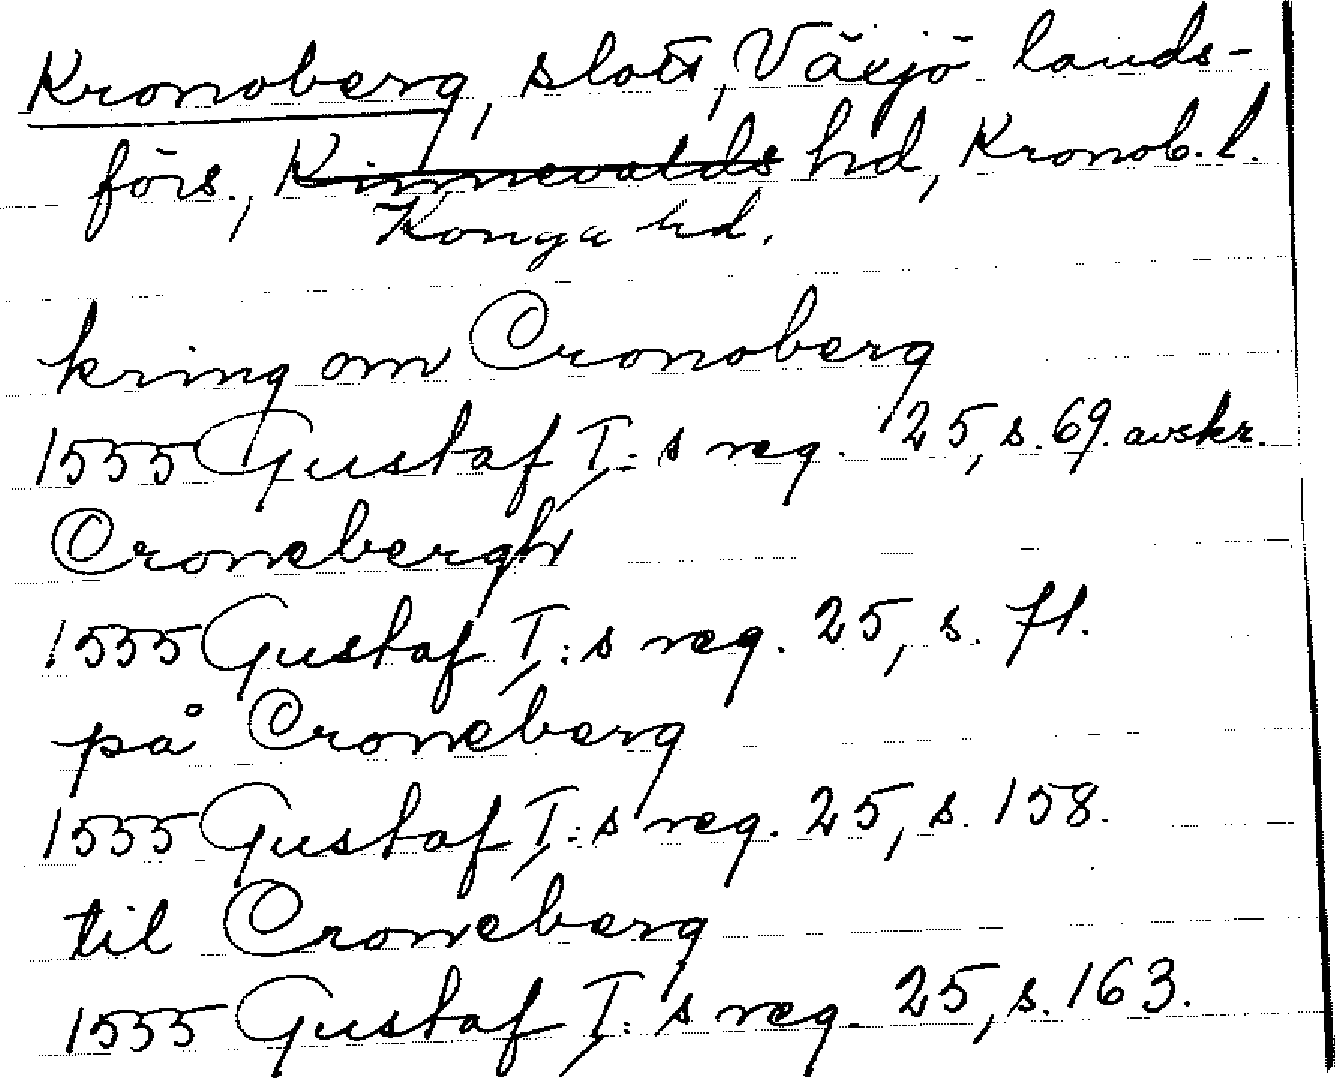 Kronoberg, slott, Växjö lands-
förs., Kinnevalds hd, Kronob. l.
Konga hd.
kring om Cronoberg
1555 Gustaf I:s reg. 25, s. 69. avskr.
Cronebergh
1555 Gustaf I:s reg. 25, s. 71.
på Croneberg
1555 Gustaf I:s reg. 25, s. 158.
til Croneberg
1555 Gustaf I:s reg. 25, s. 163.